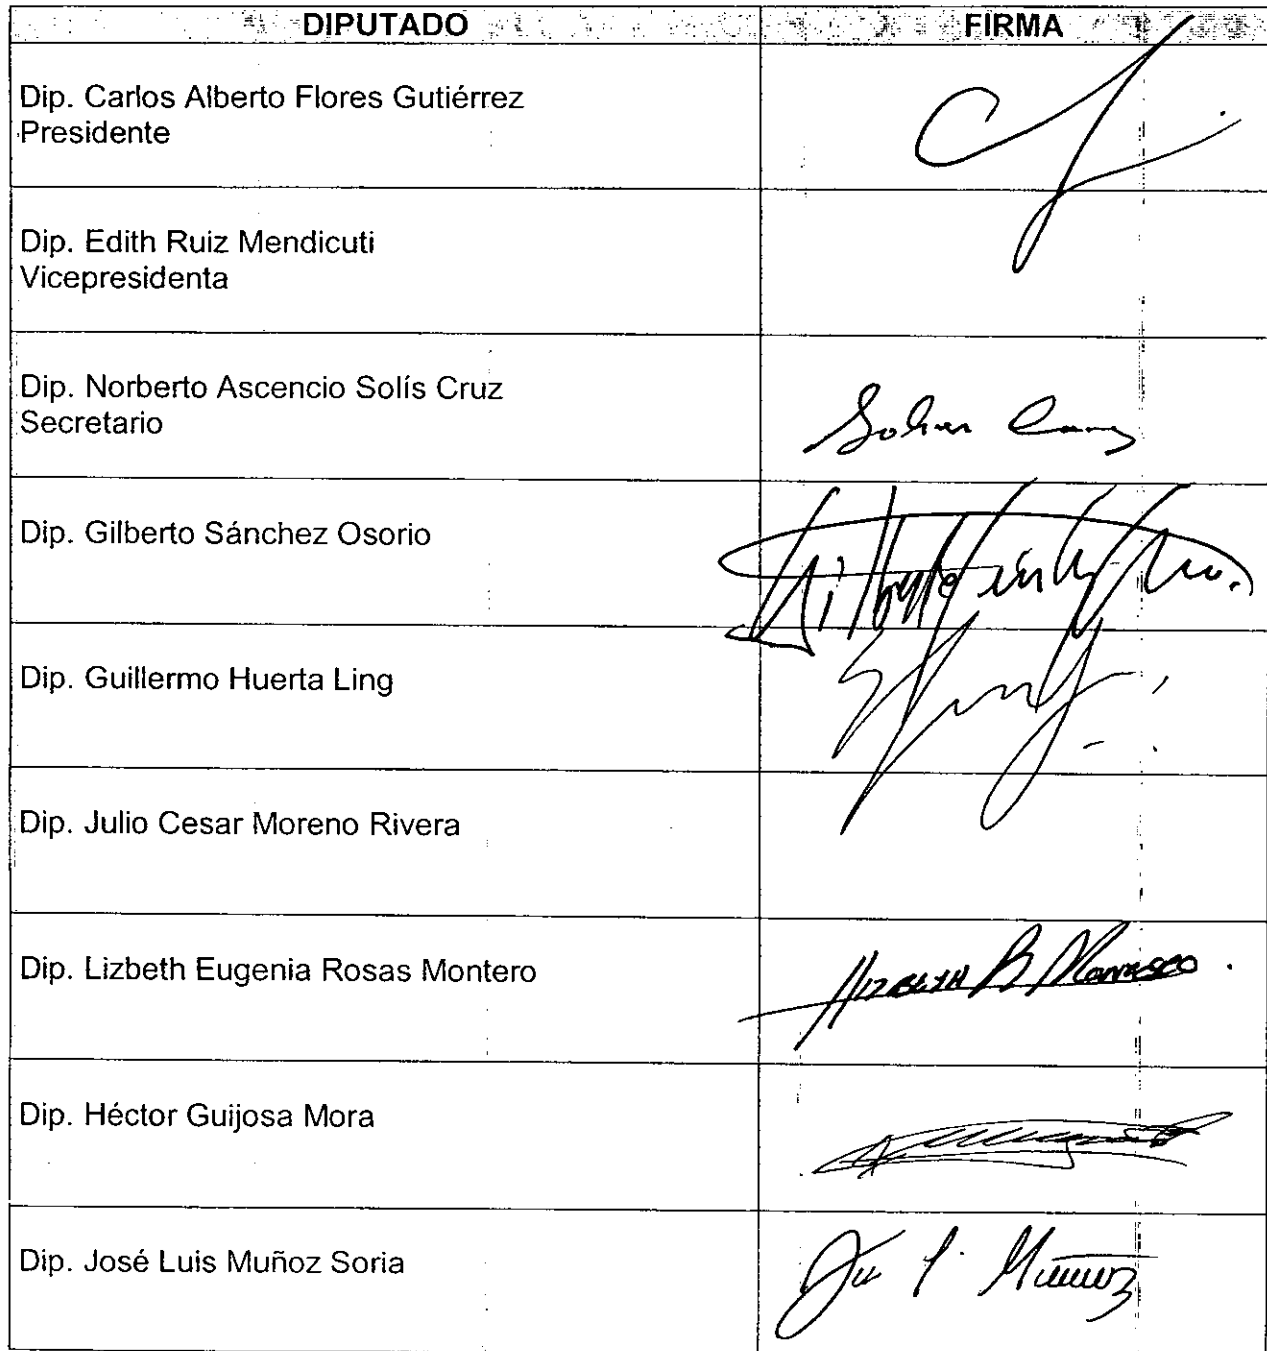 DIPUTADO FIRMA
Dip. Carlos Alberto Flores Gutiérrez
Presidente
Dip. Edith Ruiz Mendicuti
Vicepresidenta
Dip. Norberto Ascencio Solís Cruz
Secretario
Dip. Gilberto Sánchez Osorio
Dip. Guillermo Huerta Ling
Dip. Julio Cesar Moreno Rivera
Dip. Lizbeth Eugenia Rosas Montero
Dip. Héctor Guijosa Mora
Dip. José Luis Muñoz Soria